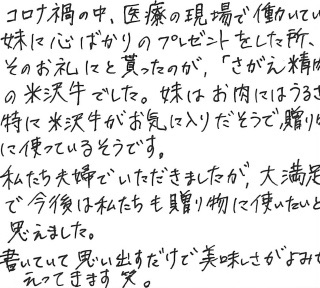 コロナ禍の中、医療の現場で働いてい
妹に心ばかりのプレゼントをした所、
そのお礼にと貰ったのが、「さがえ精肉
の米沢牛でした。妹はお肉にはうるさ
特に米沢牛がお気に入りだそうで贈り物
に使っているそうです。
私たち夫婦でいただきましたが、大満足
で今後は私たちも贈り物に使いたいと
思えました。
書いていて思い出すだけで美味しさがよみが
えってきます笑。